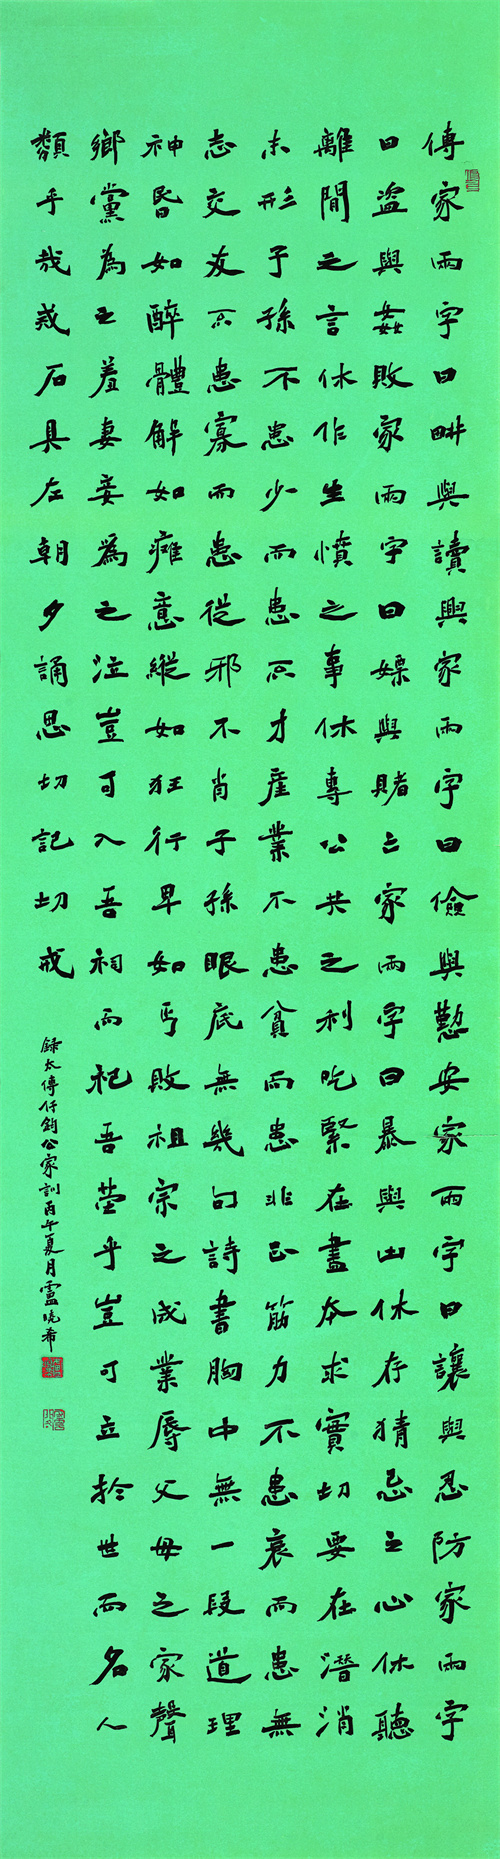 傳家兩字曰畊與讀興家兩字曰儉與懃安家兩字曰讓與忍防家兩字
曰盗與姦敗家兩字曰嫖與賭亡家兩字曰暴與凶休存猜忌之心休聽
離間之言休作生憤之事休專公共之利吃緊在盡本求實切要在潛消
未形子孫不患少而患不才産業不患貧而患非正筋力不患衰而患無
志交友不患寡而患從邪不肖子孫眼底無幾句詩書胸中無一段道理
神昏如醉體解如癱意縱如狂行卑如丐敗祖宗之成業辱父母之家聲
鄉黨為之羞妻妾為之泣豈可入吾祠而祀吾塋乎豈可立於世而名人
類乎哉戒石具左朝夕誦思切記切戒
録太傅仔鈞公家訓丙午夏月盧曉希